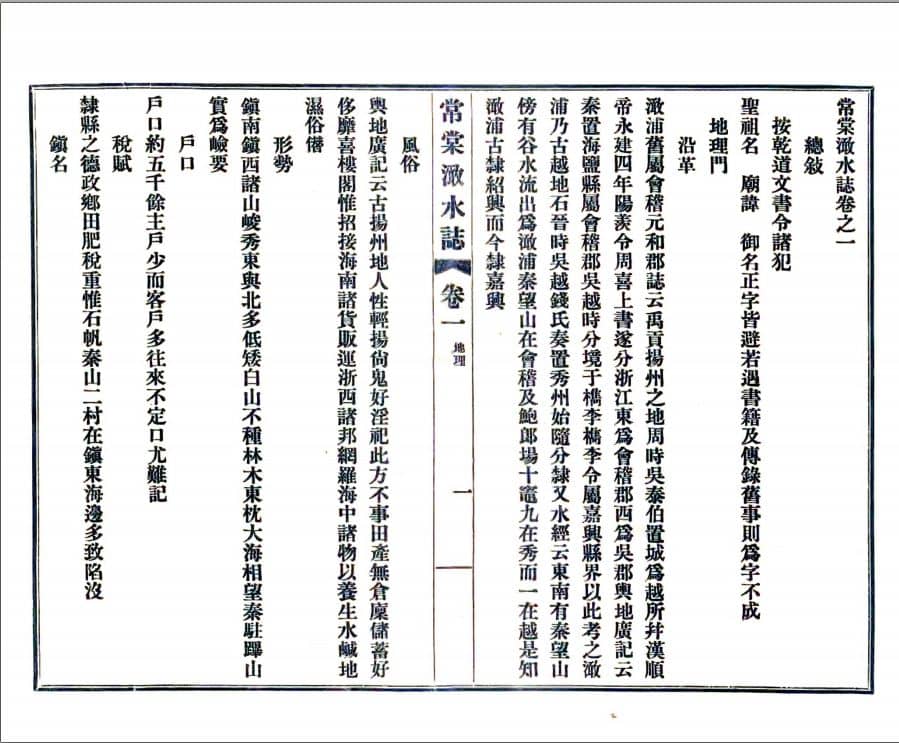 常棠澉水誌卷之一
總敍
按乾道文書令諸犯
聖祖名　廟諱　御名正字皆避若遇書籍及傳錄舊事則爲字不成
地理門
沿革
澉浦舊屬會稽元和郡誌云禹貢揚州之地周時吳泰伯置城爲越所幷漢順
帝永建四年陽羨令周喜上書遂分浙江東爲會稽郡西爲吳郡輿地廣記云
秦置海鹽縣屬會稽郡吳越時分境于檇李檇李今屬嘉興縣界以此考之澉
浦乃古越地石晉時吳越錢氏奏置秀州始隨分隸又水經云東南有秦望山
傍有谷水流出爲澉浦秦望山在會稽及鮑郎場十竈九在秀而一在越是知
澉浦古隸紹興而今隸嘉興
常棠澉水誌　卷一　地理　一
風俗
輿地廣記云古揚州地人性輕揚尙鬼好淫祀此方不事田產無倉廩儲蓄好
侈靡喜樓閣惟招接海南諸貨販運浙西諸邦網羅海中諸物以養生水鹹地
濕俗僭
形勢
鎭南鎭西諸山峻秀東與北多低矮白山不種林木東枕大海相望秦駐蹕山
實爲嶮要
戶口
戶口約五千餘主戶少而客戶多往來不定口尤難記
稅賦
隸縣之德政鄉田肥稅重惟石帆秦山二村在鎭東海邊多致陷沒
鎭名